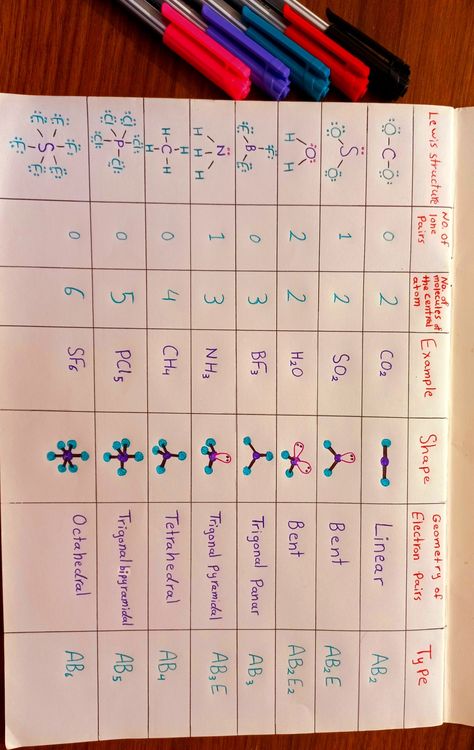 Lewis structure
No. of lone pairs
No. of molecules of the central atom
Example
Shape
Geometry of Electron Pairs
Type
O-C-O
0
2
CO2
Linear
AB2
S
O O
1
2
SO2
Bent
AB2E
O
H H
2
2
H2O
Bent
AB2E2
F
B
F F
0
3
BF3
Trigonal Panar
AB3
N
H H H
1
3
NH3
Trigonal Pyramidal
AB3E
H
H-C-H
H
0
4
CH4
Tetrahedral
AB4
Cl Cl
P Cl
Cl Cl
0
5
PCl5
Trigonal bipyramidal
AB5
F F F
S
F F F
0
6
SF6
Octahedral
AB6